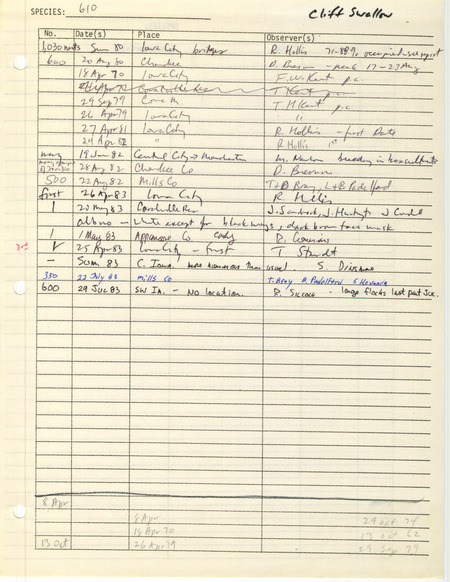 SPECIES: 610 Cliff Swallow
No. Date(s) Place Observer(s)
1,030 nests Sum 80 Iowa City bridges R. Hollis 71-88% occupied
600 20 Aug 80 Cherokee D. Bierman - peak 17-27 Aug
18 Apr 70 Iowa City F.W. Kent p.c.
T Kent
29 Sep 79 T H Kent p.c.
26 Apr 79 Iowa City "
27 Apr 81 Iowa City R. Hollis - first Date
24 Apr 82 " R Hollis 1st
many 19 Jun 82 Central City → Manchester breeding in box culverts
28 Aug 82 Cherokee Co D. Bierman
500 22 Aug 82 Mills Co T+B Bray, L+B Padelford
first 26 Apr 83 Iowa City R. Hollis
1 20 May 83 Coralville Res
albino - white except for black wings, dark brown face mask
1 1 May 83 Appanoose Co. R. Cecil
1 25 Apr 83 Iowa City - first T Staudt
- Sum 83 C. Iowa. more numerous than usual S. Dinsmore
350 22 July 83 Mills Co T. Bray B. Padelford
600 29 Jul 83 SW IA. - No location. B. - large flocks last part Jul.
8 Apr
8 Apr 29 Oct 74
18 Apr 70 13 Oct 62
13 Oct 26 Apr 79 29 Sep 79